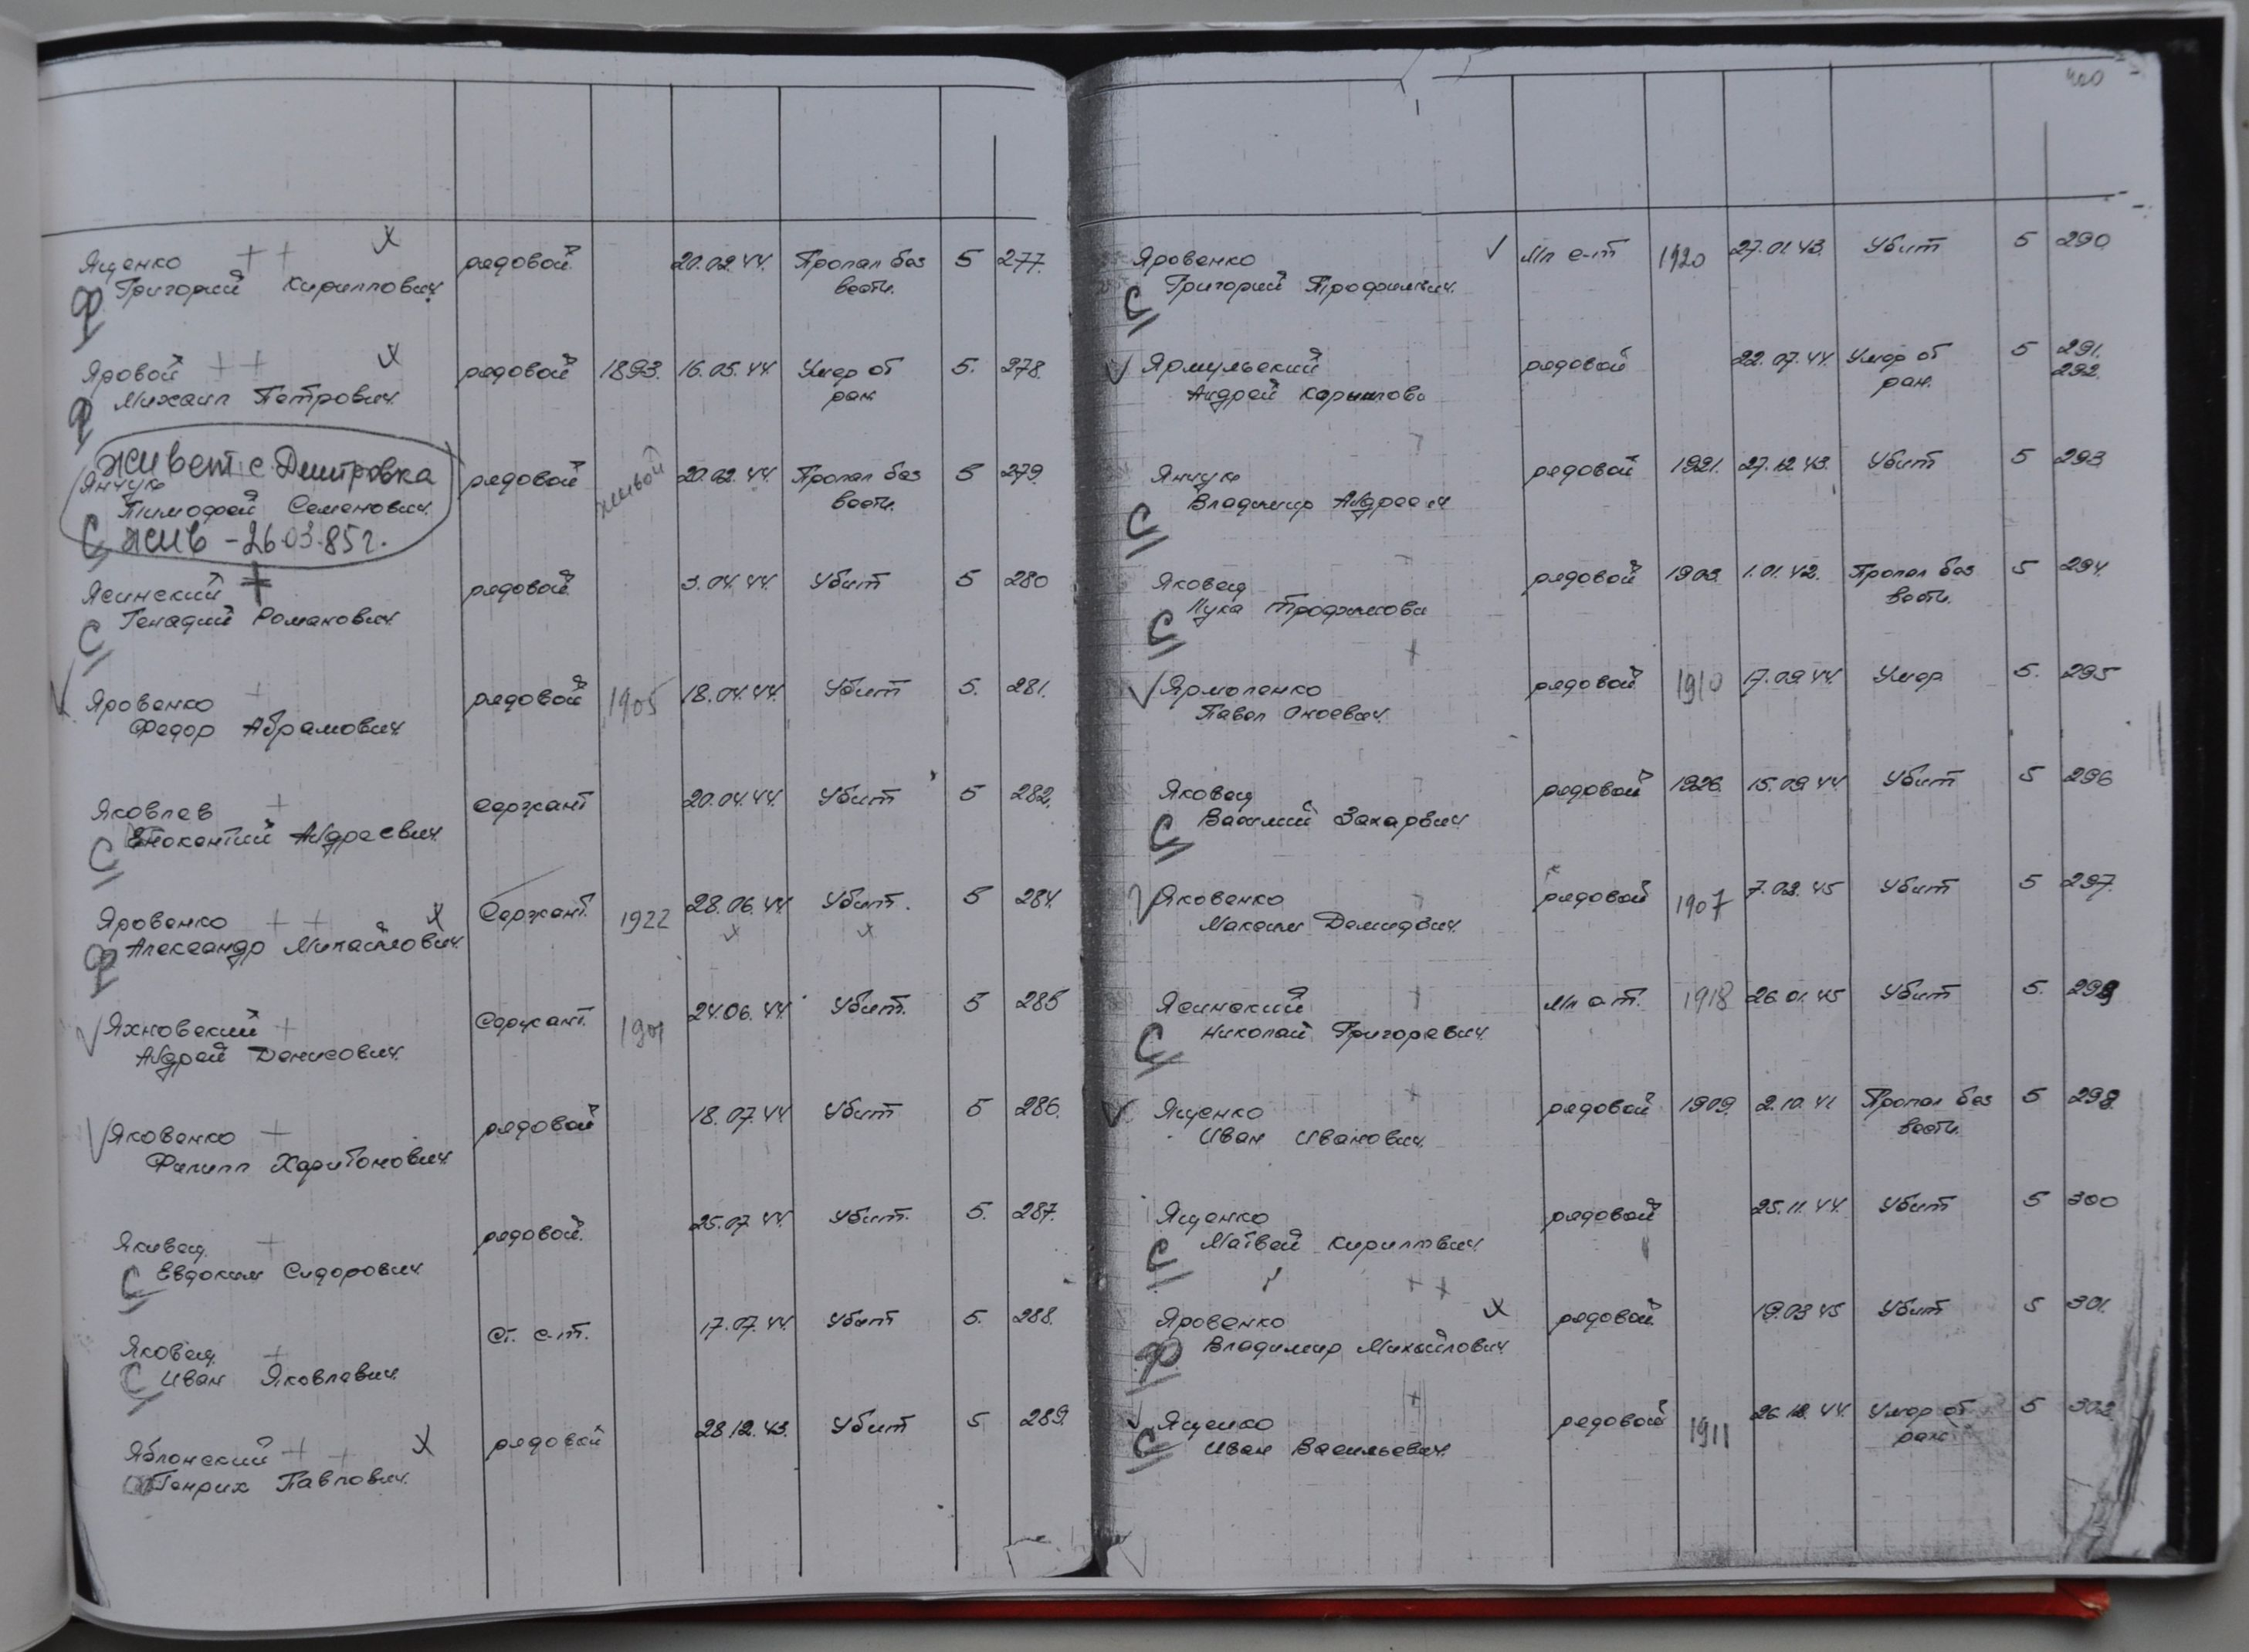 Ященко ++ х рядовой 20.02.44. Пропал без 5 277.
Ф Григорий Кириллович вести.
Яровой ++ х рядовой 1893. 16.05.44. Умер от 5. 278.
Ф Михаил Петрович. ран
живет с. Дмитровка
Янчук рядовой живой 20.02.44. Пропал без 5 279.
Тимофей Семенович. вести.
С жив - 26.03.85г.
Ясинский + рядовой 3.04.44. Убит 5 280
С Генадий Романович.
√ Яровенко + рядовой 1905 18.04.44. Убит 5. 281.
Федор Абрамович
Яковлев + сержант 20.04.44. Убит 5 282.
С Андреевич.
Яровенко ++ х Сержант. 1922 28.06.44. Убит. 5 284.
Ф Александр Михайлович. х х
√ Яхновский + Сержант. 24.06.44. Убит. 5 285
Андрей Денисович.
√ Яковенко + рядовой 18.07.44. Убит 5 286.
Филипп Харитонович.
+ рядовой. 25.07.44. Убит. 5. 287.
С Евдоким Сидорович.
Яковец + ст. с-т. 17.07.44. Убит 5. 288.
С Иван Яковлевич.
Яблонский ++ х рядовой 28.12.43. Убит 5 289.
Генрих Павлович.
400
Яровенко √ Мл с-т 1920 27.01.43. Убит 5 290
С Григорий Трофимович.
√ Ярмульский рядовой 22.07.44. Умер от 5 291.
Андрей ран. 292.
Янчук рядовой 1921. 27.12.43. Убит 5 293
С Владимир
Яковец рядовой 1903. 1.01.42. Пропал без 5 294.
С Лука Трофимови вести.
+
√ Ярмоленко рядовой 1910 17.09.44. Умер 5. 295
Павел
Яковец рядовой 1926. 15.09.44. Убит 5 296
С Василий Захарович
√ Яковенко + рядовой 1907 7.02.45 Убит 5 297.
Максим Демидович.
Ясинский + Мл с-т. 1918 26.01.45 Убит 5.
С Николай Григоревич.
√ Ященко + рядовой 1909. 2.10.41 Пропал без 5
Иван Иванович. вести.
Ященко рядовой 25.11.44. Убит 5 300
С Матвей Кириллович.
++
Яровенко х рядовой 19.03.45 Убит 5 301.
Ф Владимир Михайлович
+
√ Ященко рядовой 1911 26.12.44. Умер от 5 302
С Иван Васильевич. ран